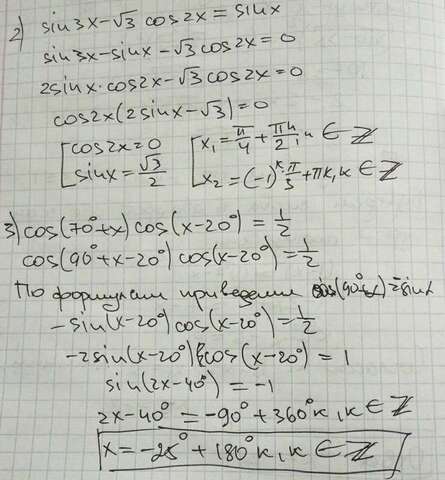 2) sin3x-√3 cos2x = sinx
sin3x-sinx-√3cos2x=0
2sinx·cos2x-√3cos2x=0
cos2x(2sinx-√3)=0
[cos2x=0 [x₁=π/4+πn/2, n∈Z
[sinx=√3/2 [x₂=(-1)^k·π/3+πk, k∈Z
3) cos(70°+x)cos(x-20°)=1/2
cos(90°+x-20°)cos(x-20°)=1/2
По формулам приведени
-sin(x-20°)cos(x-20°)=1/2
-2sin(x-20°)cos(x-20°)=1
sin(2x-40°)=-1
2x-40°=-90°+360°k, k∈Z
x=-25°+180°k, k∈Z